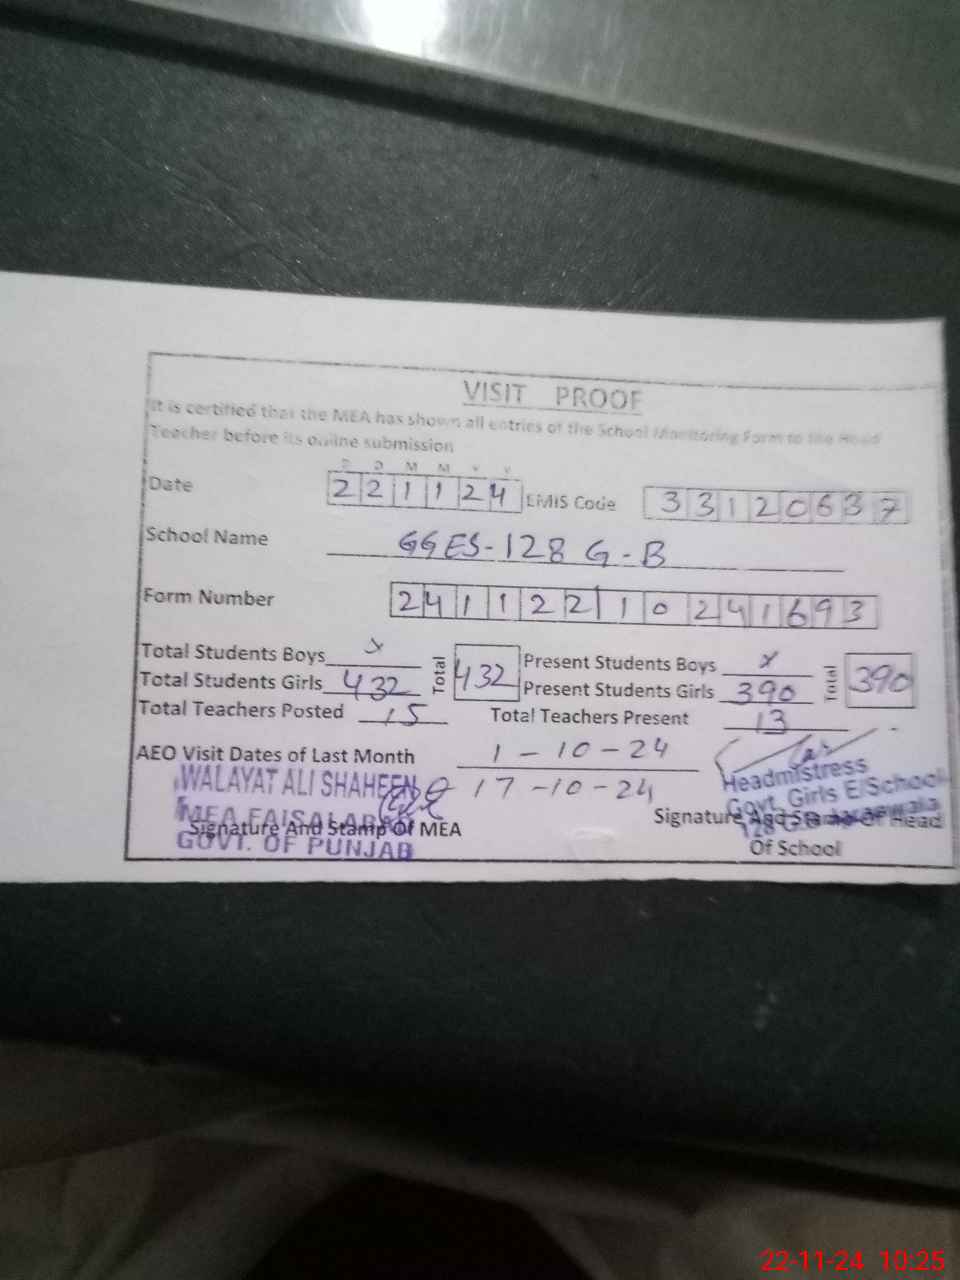 VISIT PROOF
It is certified that the MEA has shown all entries of the School Monitoring Form to the Head
Teacher before its online submission
D D M M Y Y
Date 221124 EMIS Code 33120637
School Name GGES-128 G-B
Form Number 24112210241693
Total Students Boys x Total 432 Present Students Boys x Total 390
Total Students Girls 432 Present Students Girls 390
Total Teachers Posted 15 Total Teachers Present 13
AEO Visit Dates of Last Month 1-10-24
17-10-24
WALAYAT ALI SHAHEEN
MEA FAISALABAD
GOVT. OF PUNJAB
Signature And Stamp Of MEA
Headmistress
Govt. Girls E/School
128
Signature And Stamp Of Head
Of School
22-11-24 10:25